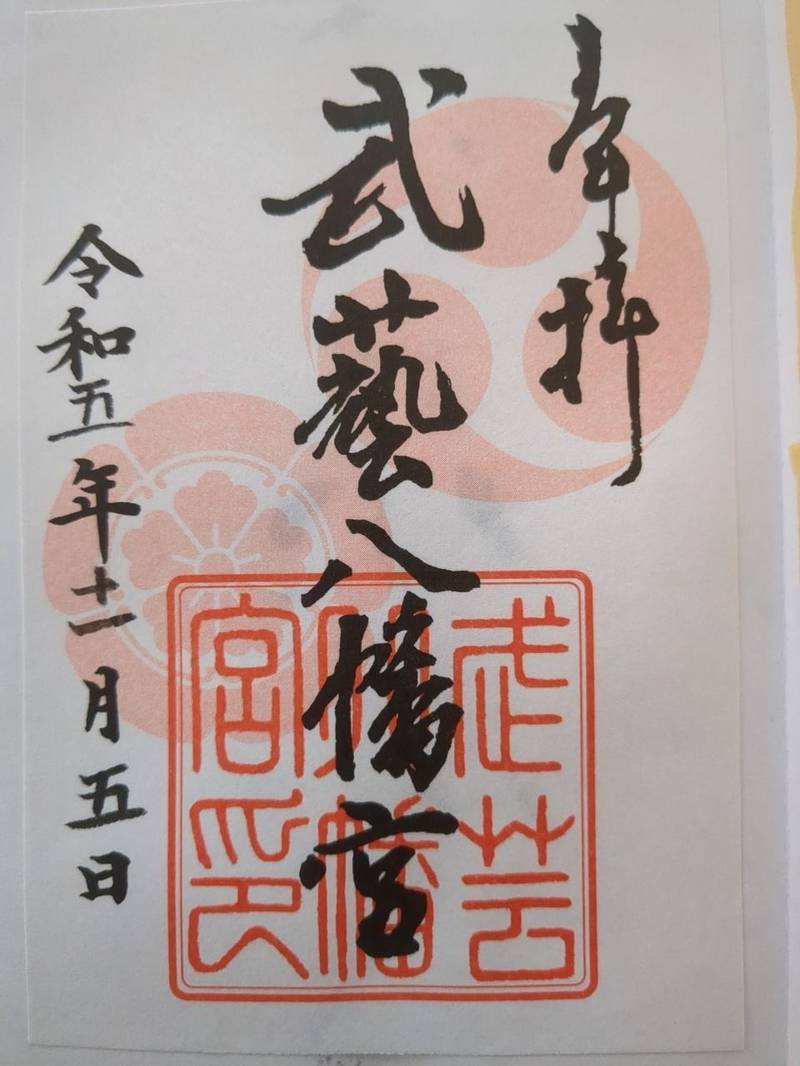 奉拝
武藝八幡宮
令和五年十一月五日
武芸
八幡
宮印